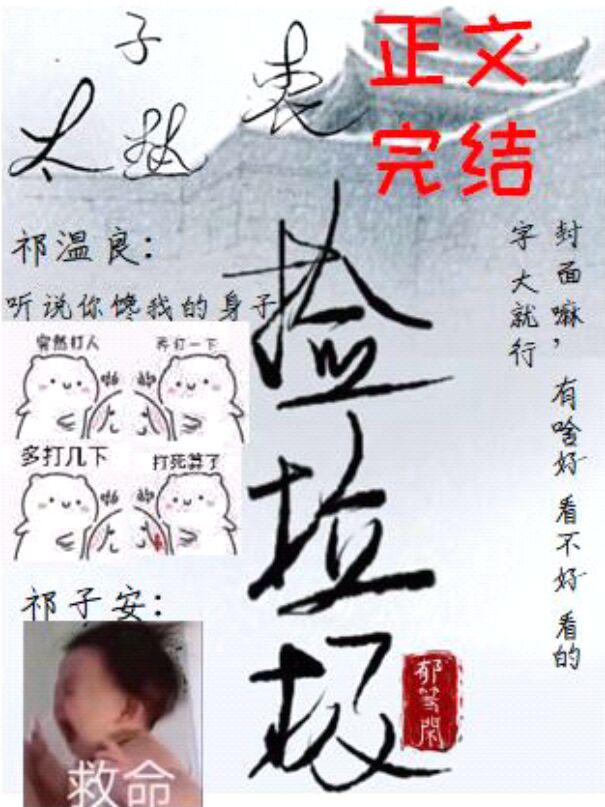 子
太
正文
完结
捡垃圾
封面嘛，有啥好看不好看的
字大就行
祁温良：
听说你馋我的身子
突然打人
再打一下
啪
啪
多打几下
打死算了
啪
啪
祁子安：
救命